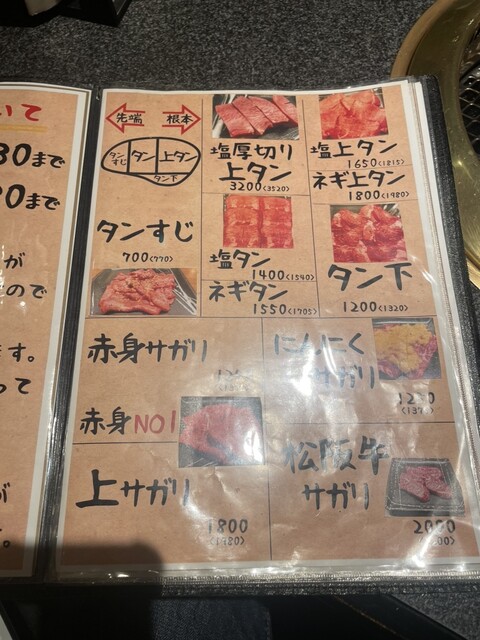 いて
30まで
20まで
が
ので
ます。
って
が
先端 根本
タンすじ タン 上タン
タン下
塩厚切り
上タン
3200<3520>
塩上タン
1650<1815>
ネギ上タン
1800<1980>
タンすじ
700<770>
塩タン
1400<1540>
ネギタン
1550<1705>
タン下
1200<1320>
赤身サガリ
赤身NO1
にんにく
サガリ
上サガリ
1800
<1980>
松阪牛
サガリ
2000